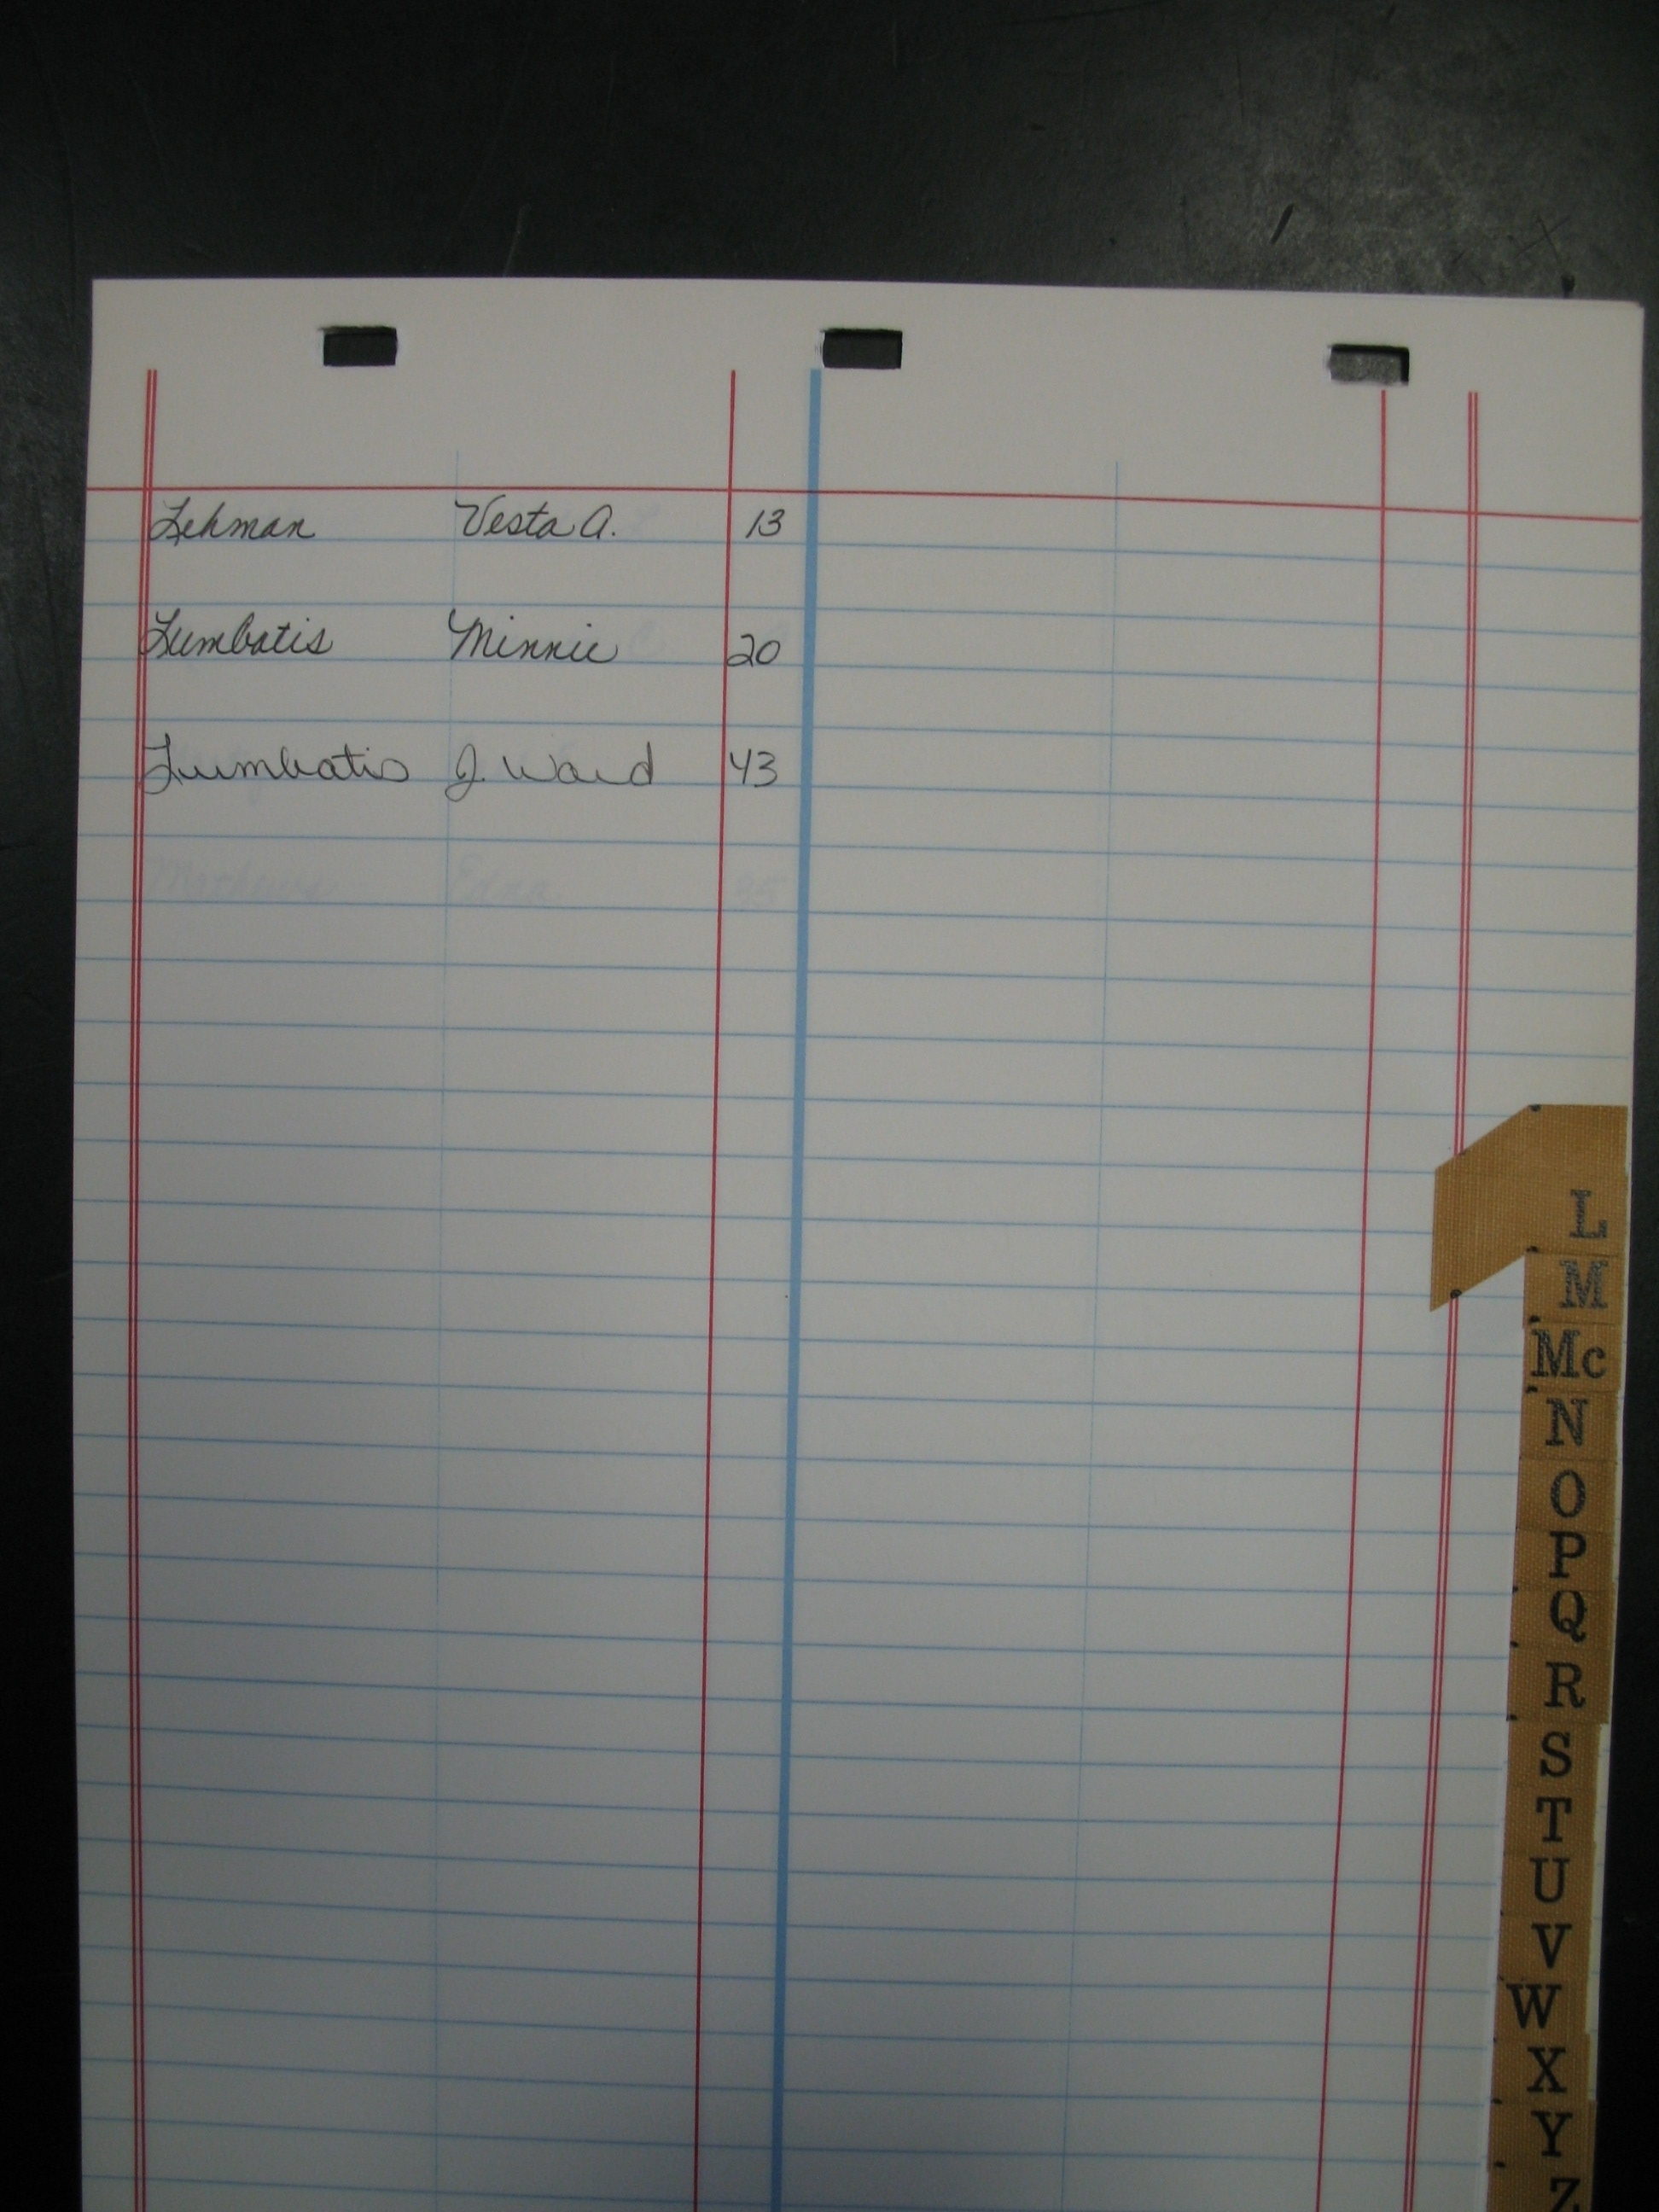 Lehman Vesta A. 13
Lumbatis Minnie 20
Lumbatis J. Ward 43
Mathews Edna 35
L
M
Mc
N
O
P
Q
R
S
T
U
V
W
X
Y
Z